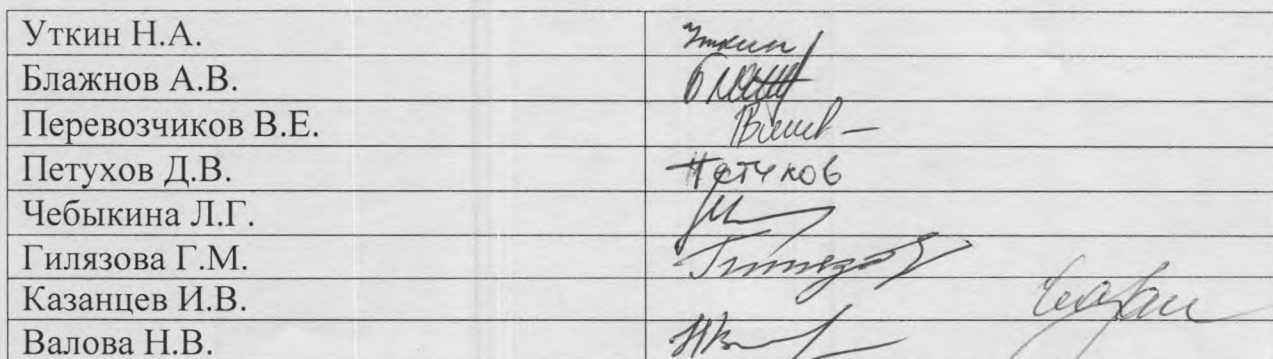 Уткин Н.А. Уткин
Блажнов А.В.
Перевозчиков В.Е.
Петухов Д.В. Петухов
Чебыкина Л.Г.
Гилязова Г.М.
Казанцев И.В.
Валова Н.В.